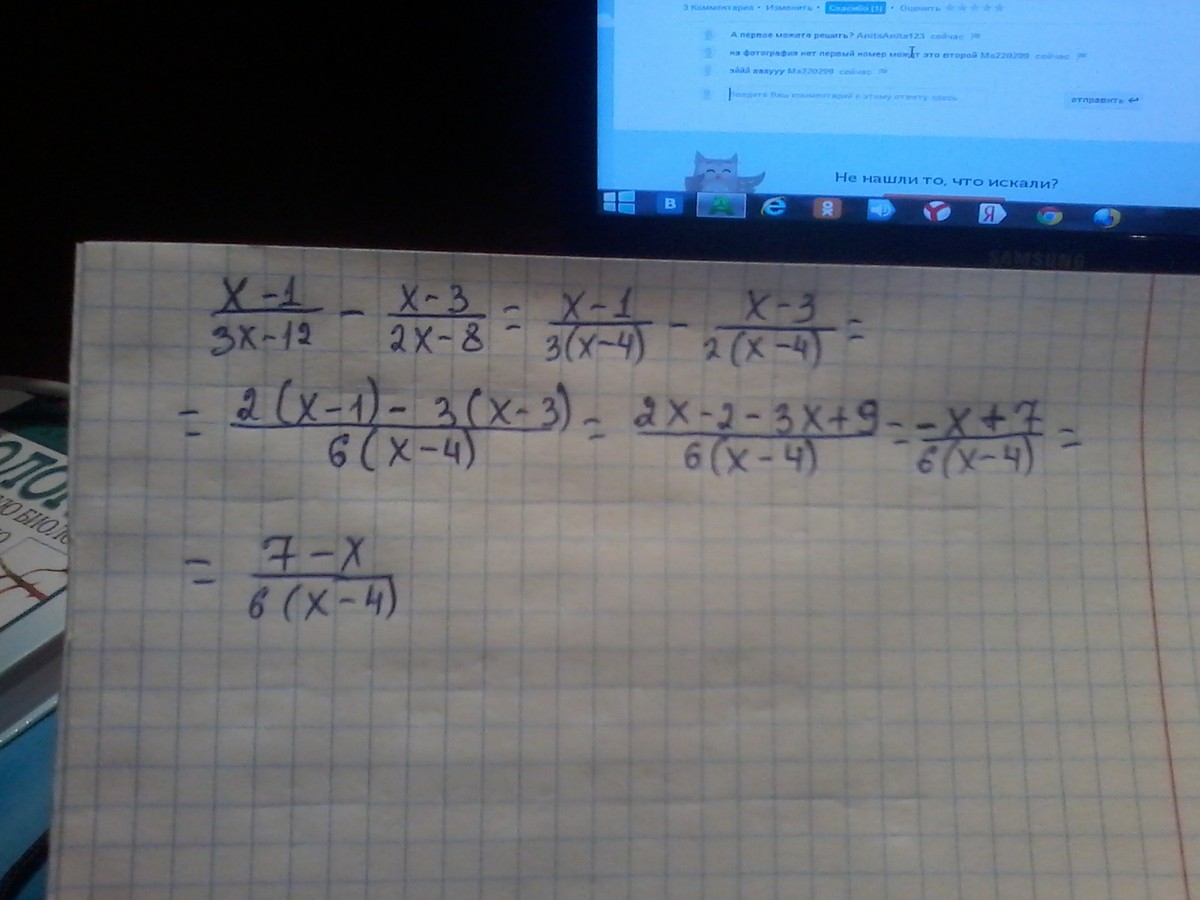 3 Комментария • Изменить • Спасибо (1) • Оценить
А первое можите решить? AnitaAnita123 сейчас
на фотография нет первый номер может это второй Ma220299 сейчас
Ma220299 сейчас
Введите Ваш комментарий к этому ответу здесь
отправить ↵
Не нашли то, что искали?
SAMSUNG
(x-1)/(3x-12) - (x-3)/(2x-8) = (x-1)/(3(x-4)) - (x-3)/(2(x-4)) =
= (2(x-1)-3(x-3))/(6(x-4)) = (2x-2-3x+9)/(6(x-4)) = (-x+7)/(6(x-4)) =
= (7-x)/(6(x-4))